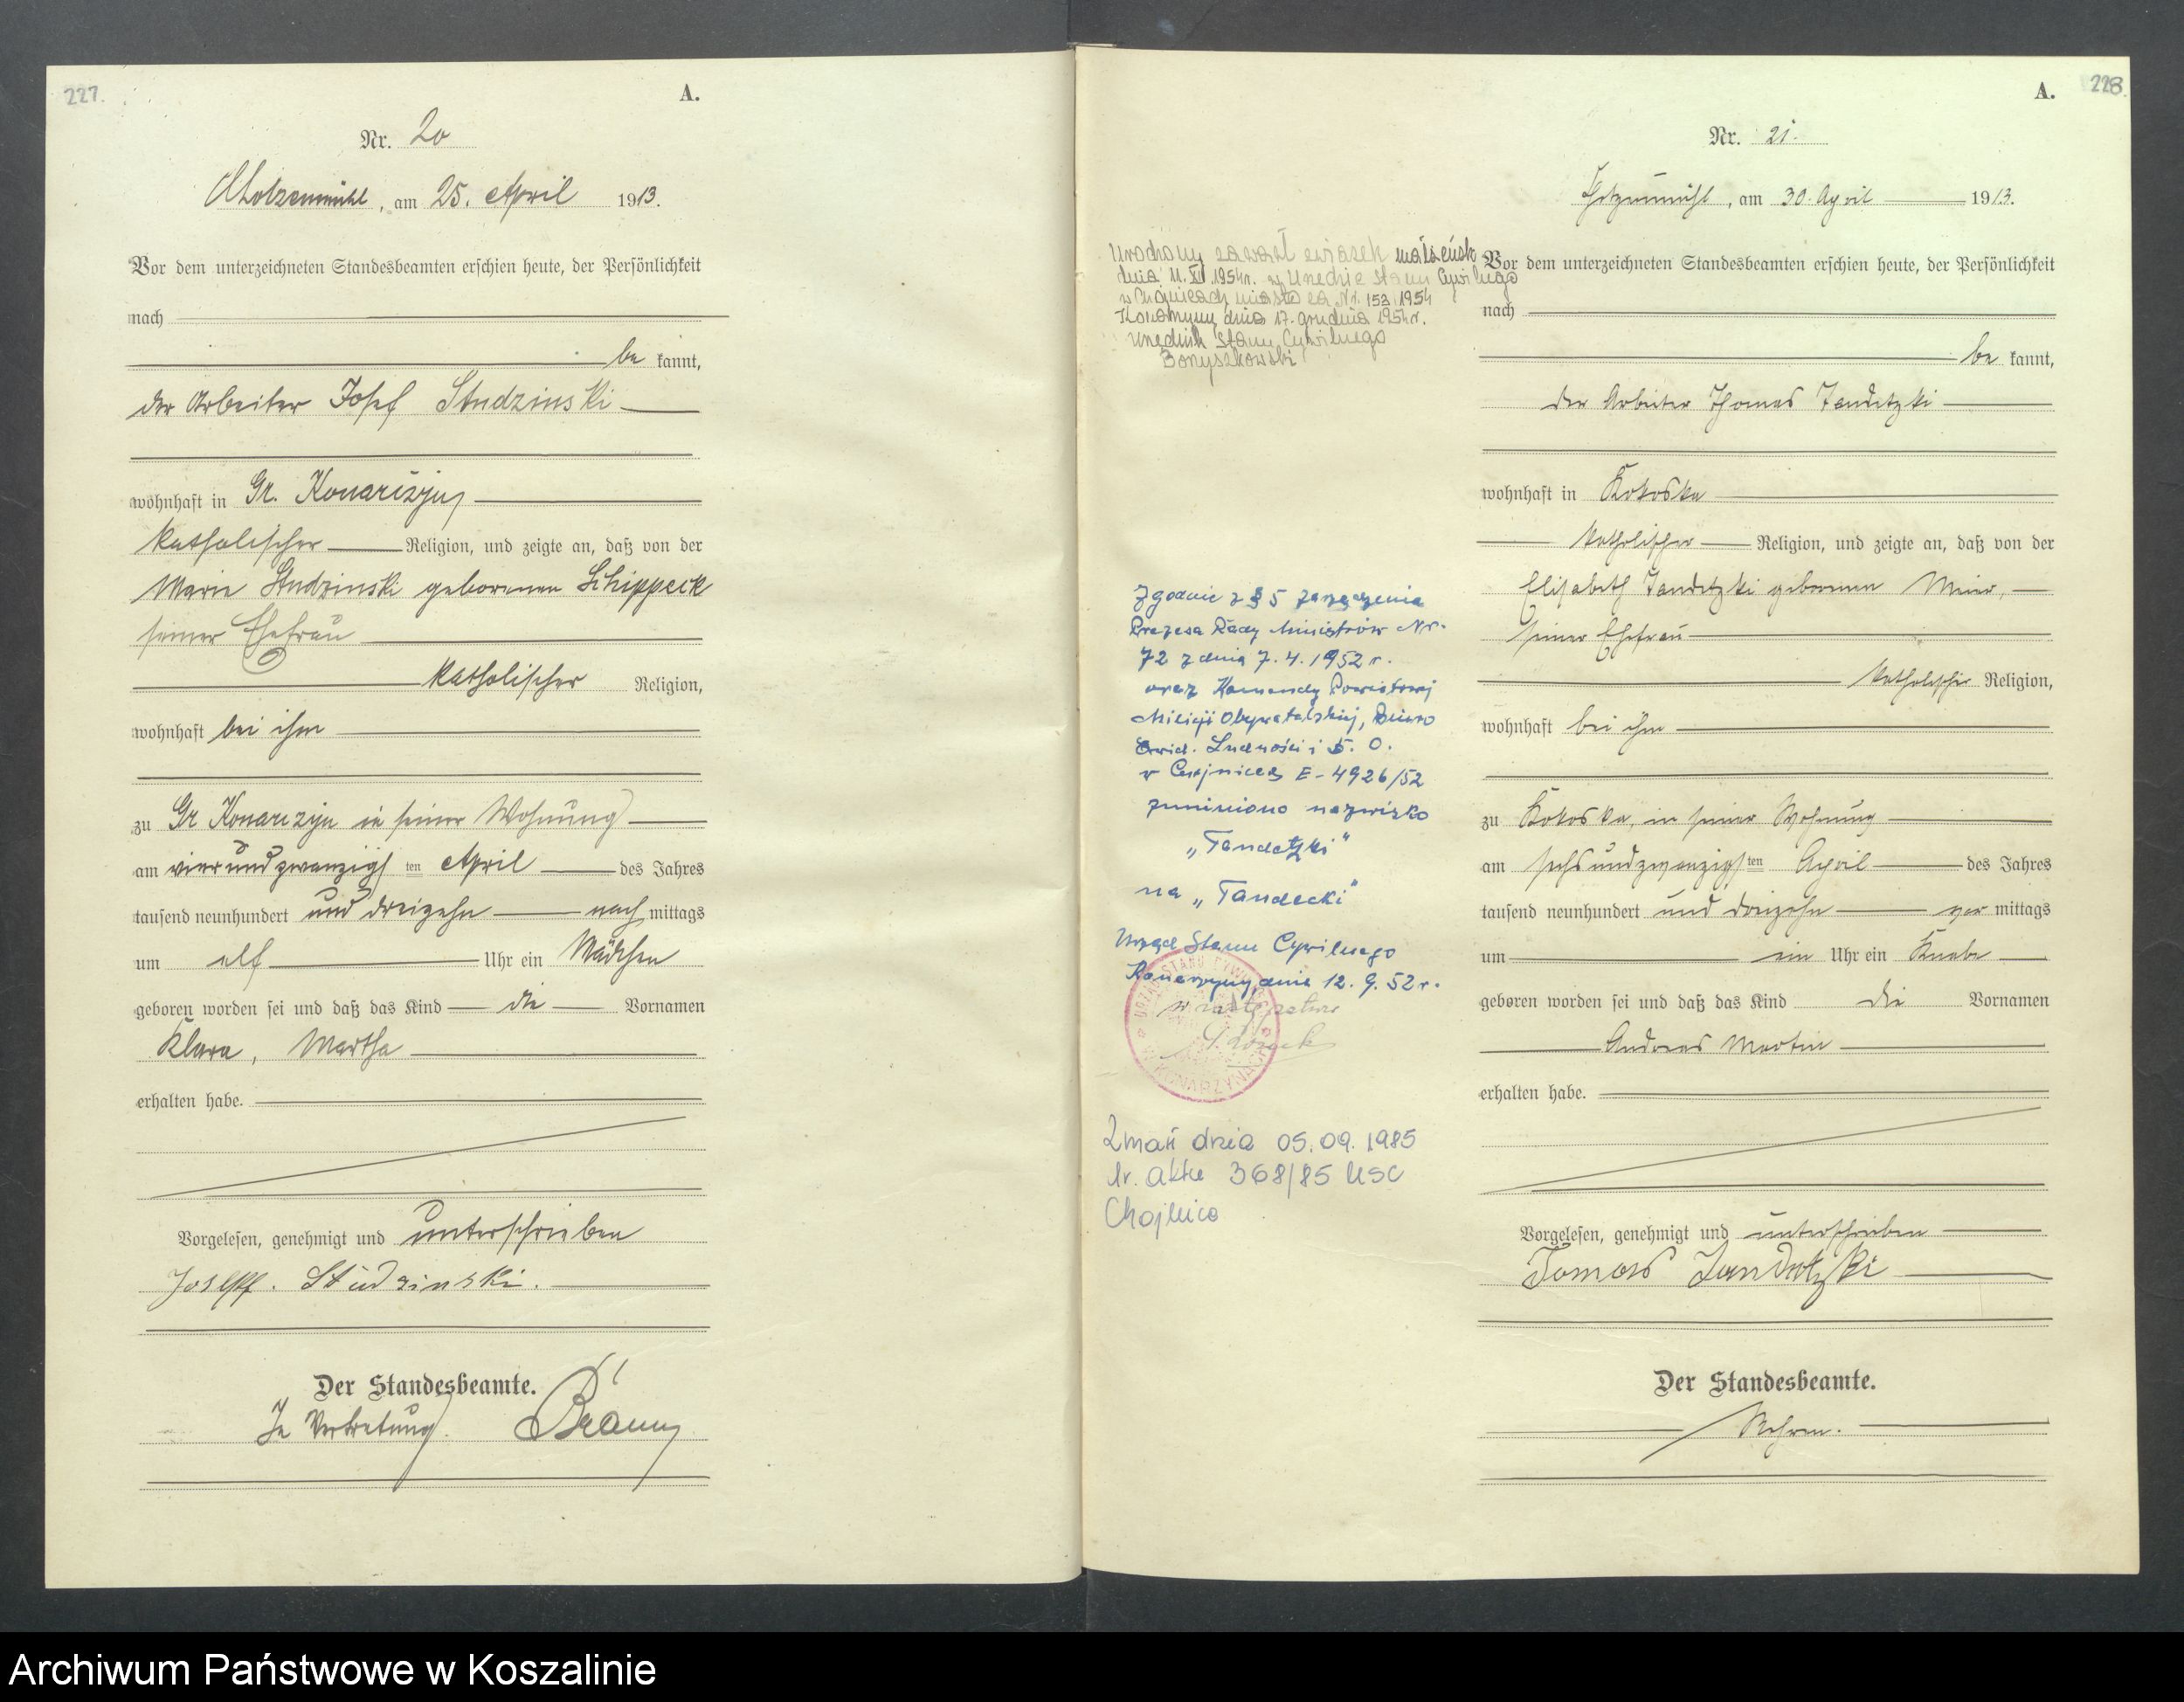 227.
A.
Nr. 20
am 25. April 1913.
Vor dem unterzeichneten Standesbeamten erschien heute, der Persönlichkeit
nach
be kannt,
der Arbeiter Josef Studzinski
wohnhaft in Gr. Konarczyn
katholischer Religion, und zeigte an, daß von der
Marie Studzinski geborenen Schippeck
seiner Ehefrau
katholischer Religion,
wohnhaft bei ihm
zu Gr Konarczyn in seiner Wohnung
am vierundzwanzigsten April des Jahres
tausend neunhundert und dreizehn nach mittags
um elf Uhr ein Mädchen
geboren worden sei und daß das Kind die Vornamen
Klara, Martha
erhalten habe.
Vorgelesen, genehmigt und unterschrieben
Joseph. Studzinski.
Der Standesbeamte.
In Vertretung.
228.
A.
Nr. 21.
am 30. April 1913.
Urodzony zawarł związek małżeński
dnia 11. XI. 1954r. w Urzędzie Stanu Cywilnego
w Chojnicach miasto za Nr. 152/1954
Konarzyny dnia 17. grudnia 1954r.
Urzędnik Stanu Cywilnego
Zgodnie z § 5 zarządzenia
Prezesa Rady Ministrów Nr.
72 z dnia 7.4.1952 r.
oraz Komendy Powiatowej
Milicji Obywatelskiej, Biuro
Ewid. Ludności i D. O.
w Chojnicach E-4926/52
zmieniono nazwisko
„Tandetzki"
na „Tandecki"
Urząd Stanu Cywilnego
Konarzyny, dnia 12.9.52 r.
w zastępstwie
Zmarł dnia 05.09.1985
Nr. aktu 368/85 USC
Chojnice
Vor dem unterzeichneten Standesbeamten erschien heute, der Persönlichkeit
nach
be kannt,
der Arbeiter Thomas Tandetzki
wohnhaft in Kokoska
katholischer Religion, und zeigte an, daß von der
Elisabeth Tandetzki geborenen Meier,
seiner Ehefrau
katholischer Religion,
wohnhaft bei ihm
zu Kokoska, in seiner Wohnung
am sechsundzwanzigsten April des Jahres
tausend neunhundert und dreizehn vor mittags
um ein Uhr ein Knabe
geboren worden sei und daß das Kind die Vornamen
Andreas Martin
erhalten habe.
Vorgelesen, genehmigt und unterschrieben
Tomas Tandetzki
Der Standesbeamte.
Archiwum Państwowe w Koszalinie